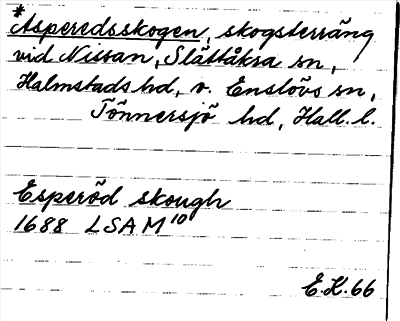 *Asperedsskogen, skogsterräng
vid Nissan, Slättåkra sn,
Halmstads hd, o. Enslövs sn,
Tönnersjö hd, Hall. l.
Esperöd skough
1688 LSA M¹⁰
E.K. 66